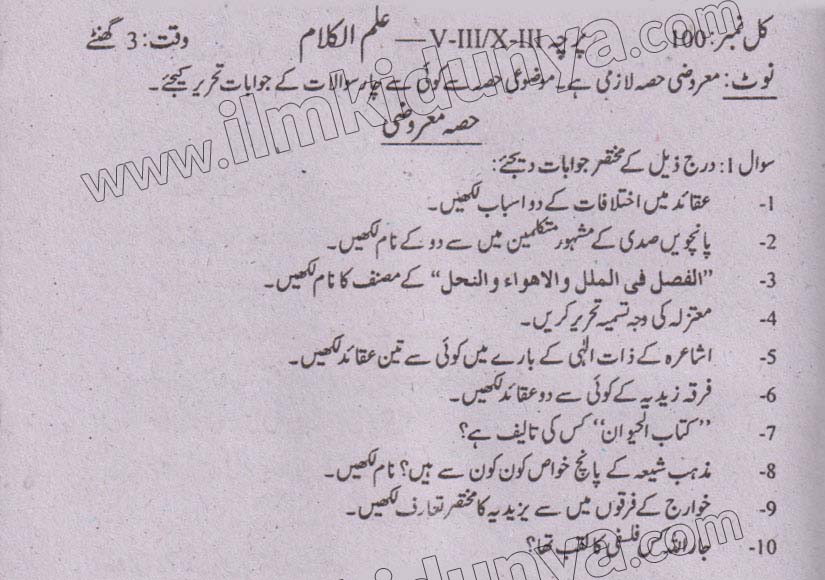 کل نمبر: 100 پرچہ V-III/X-III — علم الکلام وقت: 3 گھنٹے
نوٹ: معروضی حصہ لازمی ہے۔ موضوعی حصہ سے کوئی سے چار سوالات کے جوابات تحریر کیجئے۔
حصہ معروضی
سوال 1: درج ذیل کے مختصر جوابات دیجئے:
1- عقائد میں اختلافات کے دو اسباب لکھیں۔
2- پانچویں صدی کے مشہور متکلمین میں سے دو کے نام لکھیں۔
3- ”الفصل فی الملل والاهواء والنحل“ کے مصنف کا نام لکھیں۔
4- معتزلہ کی وجہ تسمیہ تحریر کریں۔
5- اشاعرہ کے ذات الٰہی کے بارے میں کوئی سے تین عقائد لکھیں۔
6- فرقہ زیدیہ کے کوئی سے دو عقائد لکھیں۔
7- ”کتاب الحیوان“ کس کی تالیف ہے؟
8- مذہب شیعہ کے پانچ خواص کون کون سے ہیں؟ نام لکھیں۔
9- خوارج کے فرقوں میں سے یزیدیہ کا مختصر تعارف لکھیں۔
10- جاراللہ کس فلسفی کا لقب تھا؟
www.ilmkidunya.com
www.ilmkidunya.com